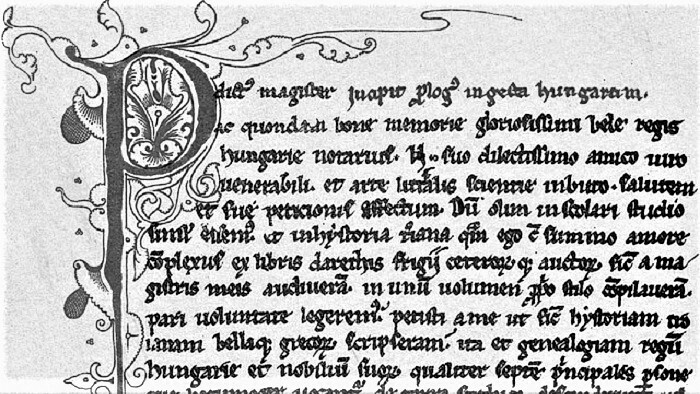 P dictꝰ magister Incipit ꝓlogꝰ in gesta hungarum.
ac quondam bone memorie gloriosissimi bele regis
hungarie notarius. N. suo dilectissimo amico uiro
uenerabili. et arte litt̾alis scientie inbuto. salutem
et sue peticionis effectum. Dū olim in scolari studio
simul essemꝰ et in hystoria t̾iana qm̄ ego cū summo amore
cōplexus ex libris darethis frigii ceteroꝝ qꝫ auctoꝝ sic̄ a ma
gistris meis audiuerā. in unū volumen ꝓprio stilo cōpilauerā.
pari uoluntate legeremꝰ. petisti a me ut sic̄ hystoriam tro
ianam bellaqꝫ grecoꝝ scripseram. ita et genealogiam regū
hungarie et nobiliū suoꝝ qualiter septē p̄ncipales p̱sone